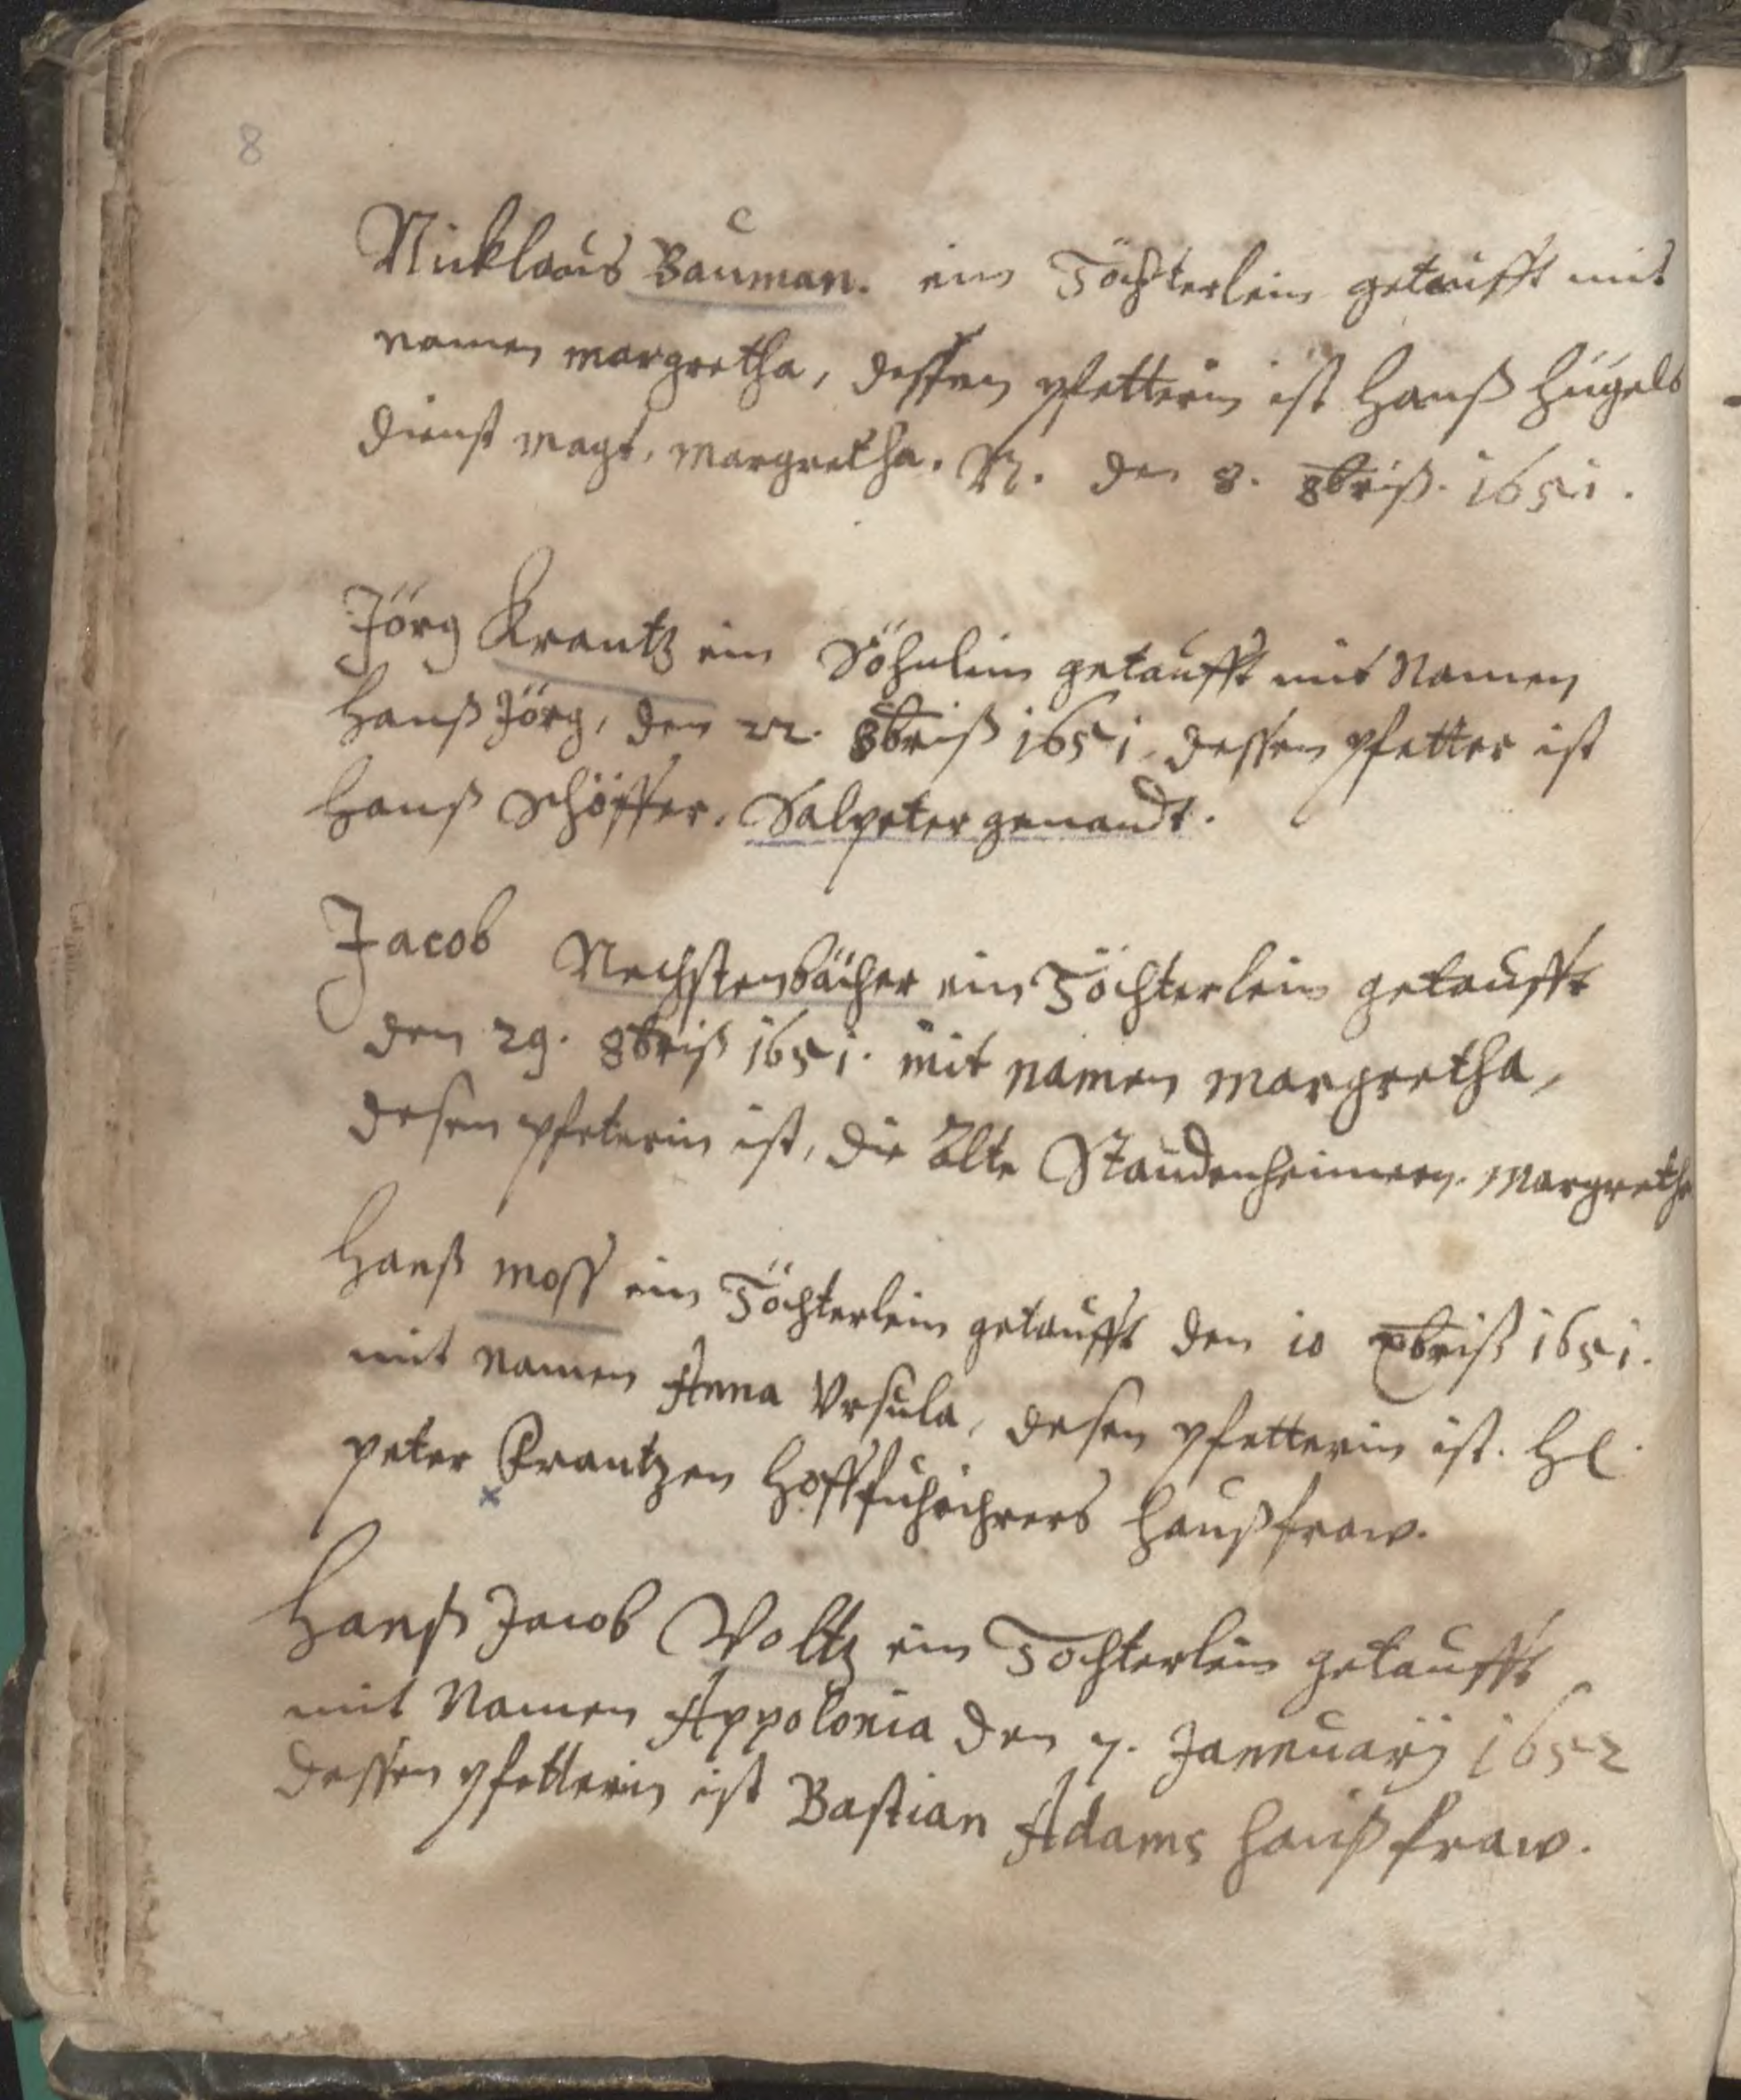 8
Nicklaus Bauman. ein Töchterlein getaufft mit
namen Margretha, dessen pfetterin ist Hanß Hügels
dienst Magt, Margretha. N. den 8. 8briß. 1651.
Jörg Krantz ein Söhnlein getaufft mit Namen
Hanß Jörg, den 22. 8briß 1651. dessen pfetter ist
Hanß Schöffer, Salpeter genandt.
Jacob Nechstenbächer ein Töchterlein getaufft
den 29. 8briß 1651. mit namen Margretha,
desen pfeterin ist, die alte Staudenheimern. Margreth
Hanß Moss ein Töchterlein getaufft den 10 Xbriß 1651.
mit namen Anna Ursula, desen pfetterin ist. Hl.
peter Crantzen haußfraw.
Hanß Jacob Voltz ein Tochterlein getaufft
mit Namen Appolonia den 7. Jannuarij 1652
dessen pfetterin ist Bastian Adams haußfraw.